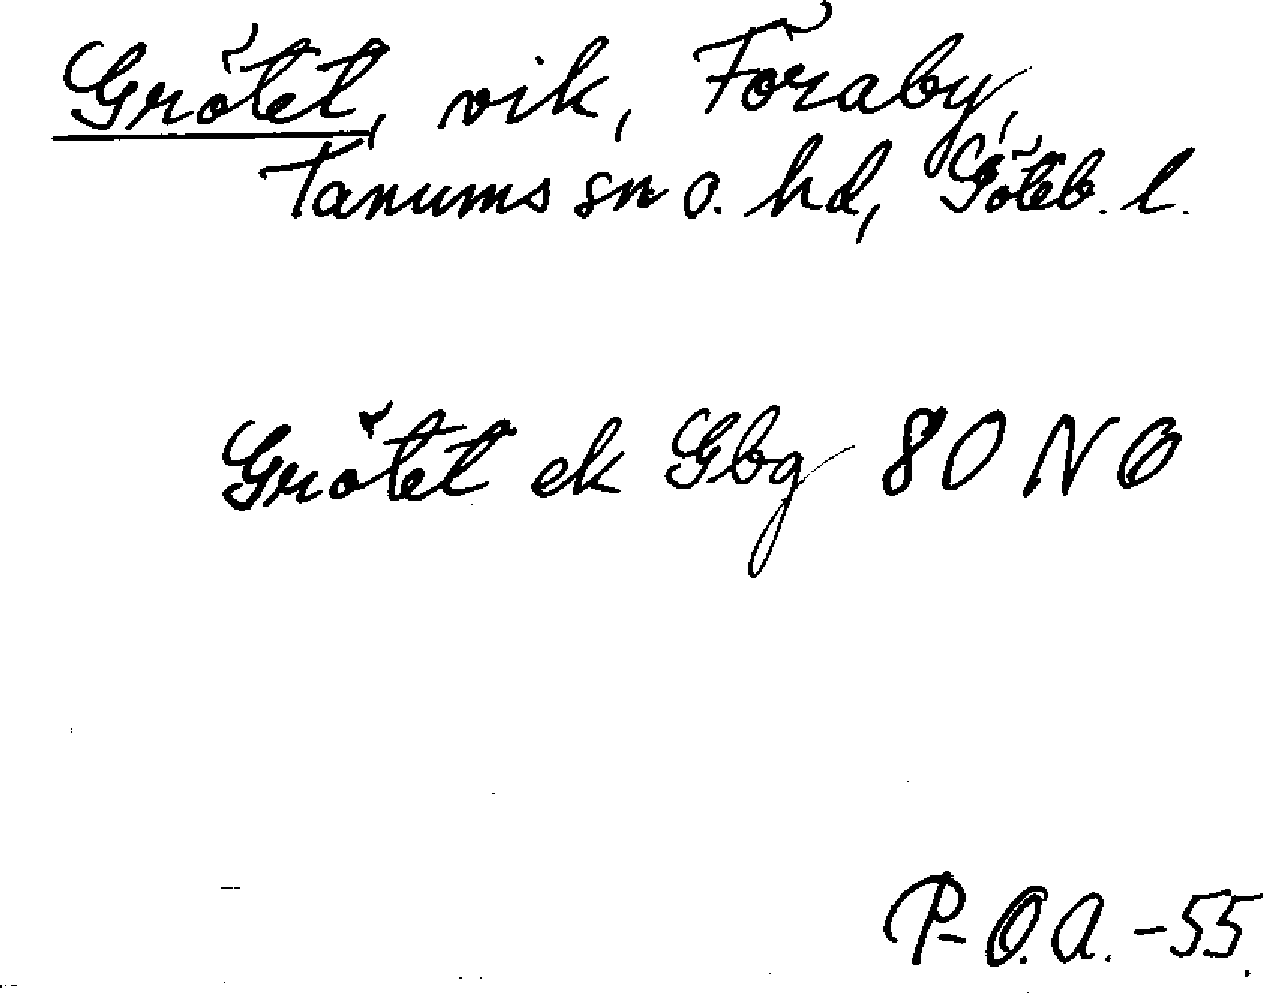 Grötet, vik, Föraby,
Tanums sn o. hd, Göteb. l.
Grötet ek Gbg 80 NO
P-O.A.-55